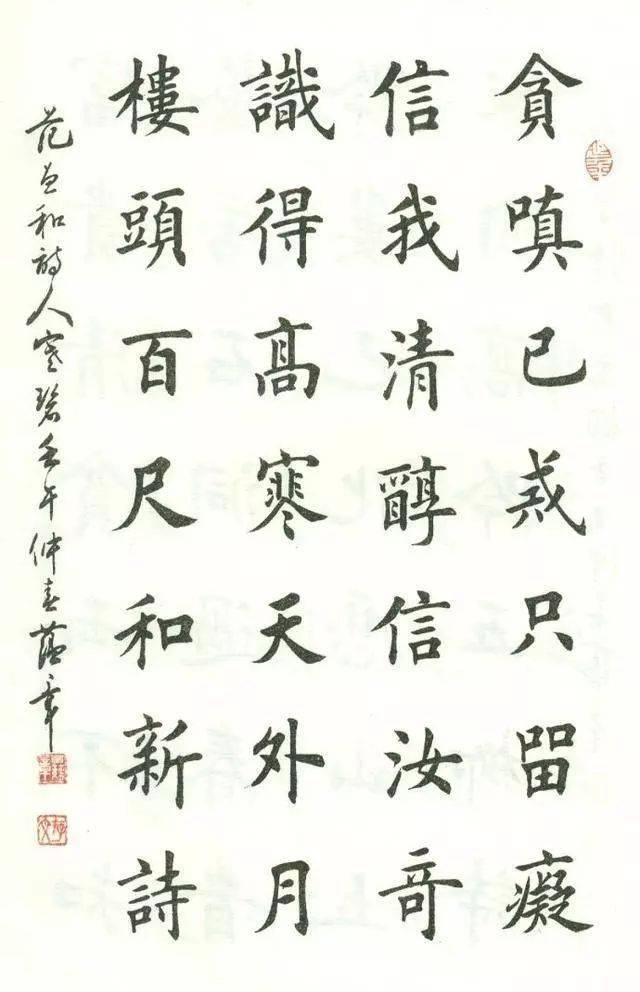 貪嗔已戒只留癡
信我清醇信汝奇
識得高寒天外月
樓頭百尺和新詩
范曾和詩人寒碧壬午仲春蘊章